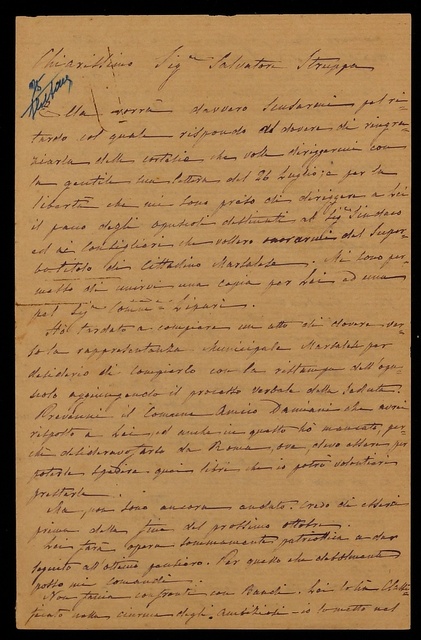 Chiarissimo Sigr Salvatore Struppa
Ella vorrà davvero scusarmi pel ri-
tardo col quale rispondo al dovere di ringra-
ziarla della cortesia che volle dirigermi con
la gentile sua lettera del 26 Luglio; e per la
libertà che mi sono preso di dirigere a Lei
il pacco degli opuscoli destinati al Sigr Sindaco
ed ai Consiglieri che vollero onorarmi del super-
bo titolo di Cittadino Marsalese. Mi sono per-
messo di unirvi una copia per Lei ed una
pel Sigr Lipari.
Ho tardato a compiere un atto di dovere ver-
so la rappresentanza Municipale Marsalese per
desiderio di compierlo con la ristampa dell'opu-
scolo aggiungendo il processo verbale della seduta.
Prevenni il Comune Amico Damiani che avrei
risposto a Lei ed anche in questo ho mancato per-
chè desideravo farlo da Roma, ove devo essere per
poterle spedire quei libri che io potrò volentieri
prestarle.
Ma non sono ancora andato. Credo di esservi
prima della fine del prossimo ottobre.
Lei farà opera sommamente patriottica a dar
seguito all'ottimo pensiero. Per quello che debolmente
posso mi comandi.
Non faccia confronti con Bandi. Lei lo ha
nella degli Ambiziosi - io lo metto nel